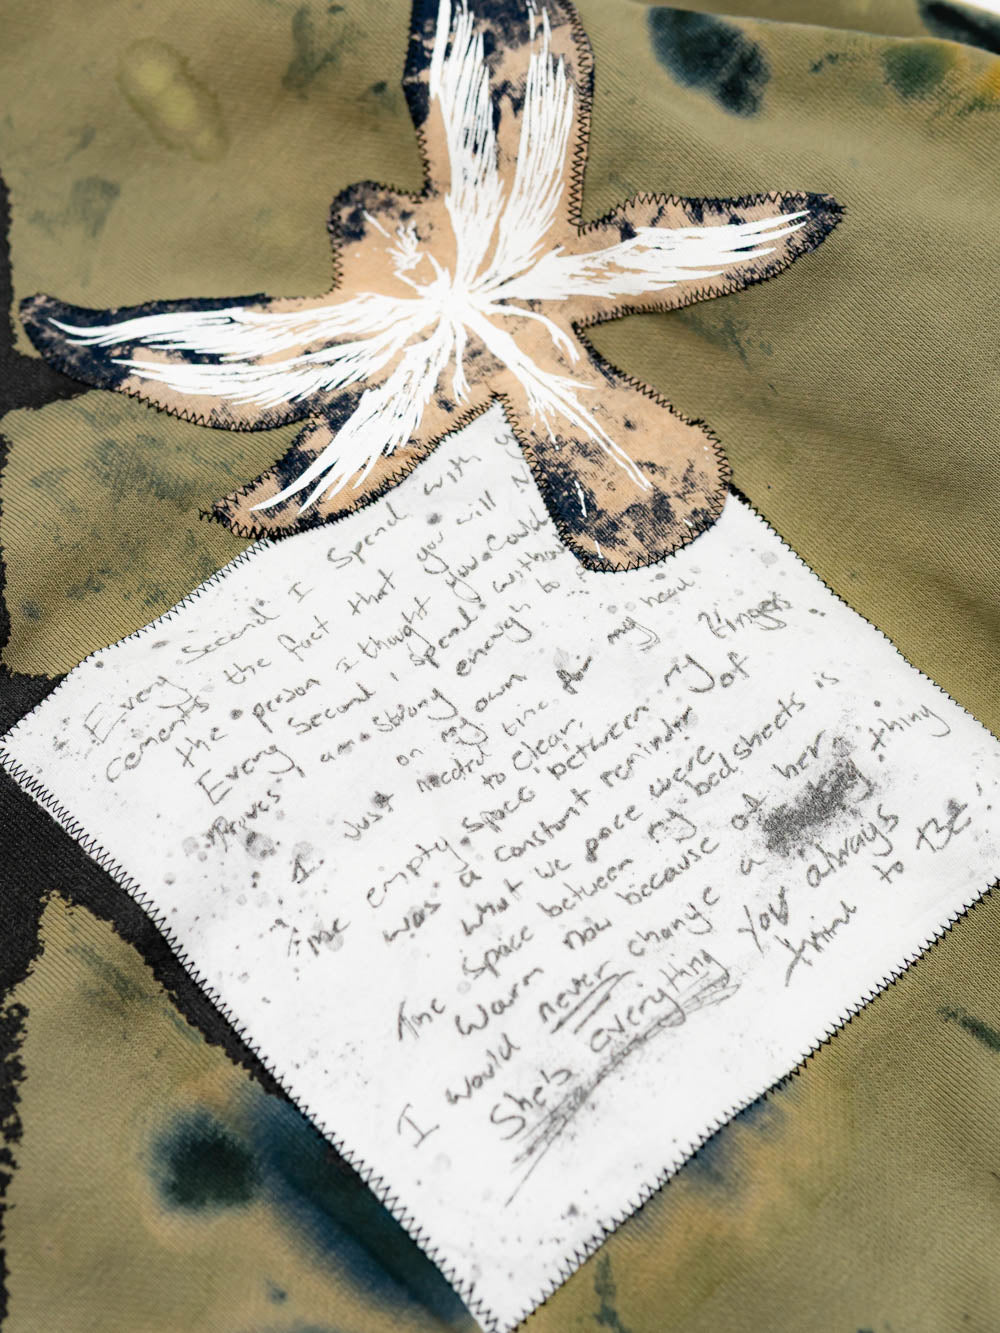 Every second I spend with
cements the fact that you will
the person I thought you could
Every second i spend without
proves am strong enough to
on my own
I Just needed time for my head
to clear.
The empty space between my fingers
was a constant reminder of
what we once were
The space between my bedsheets is
warm now because of her
I would never change a thing
She's everything You always
tried to BE!